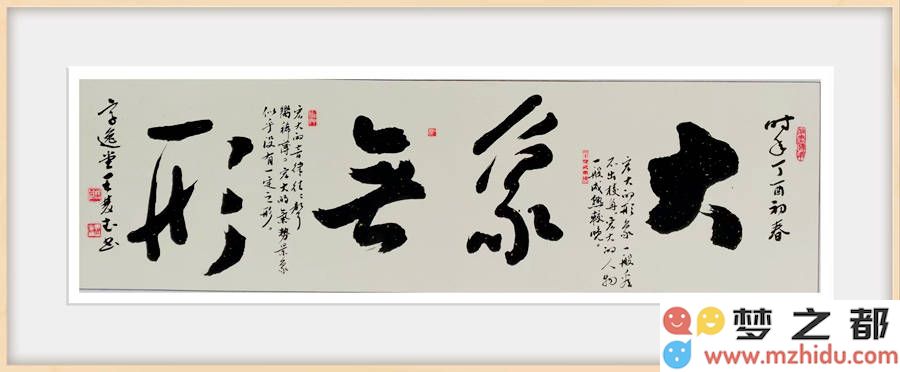 时年丁酉初春
大象無形
宏大的形象一般看
不出棱角宏大的人物
一般成熟较晚。
宏大的音律往往声
响稀薄；宏大的气势景象
似乎没有一定之形。
逸堂王书
梦之都
www.mzhidu.com